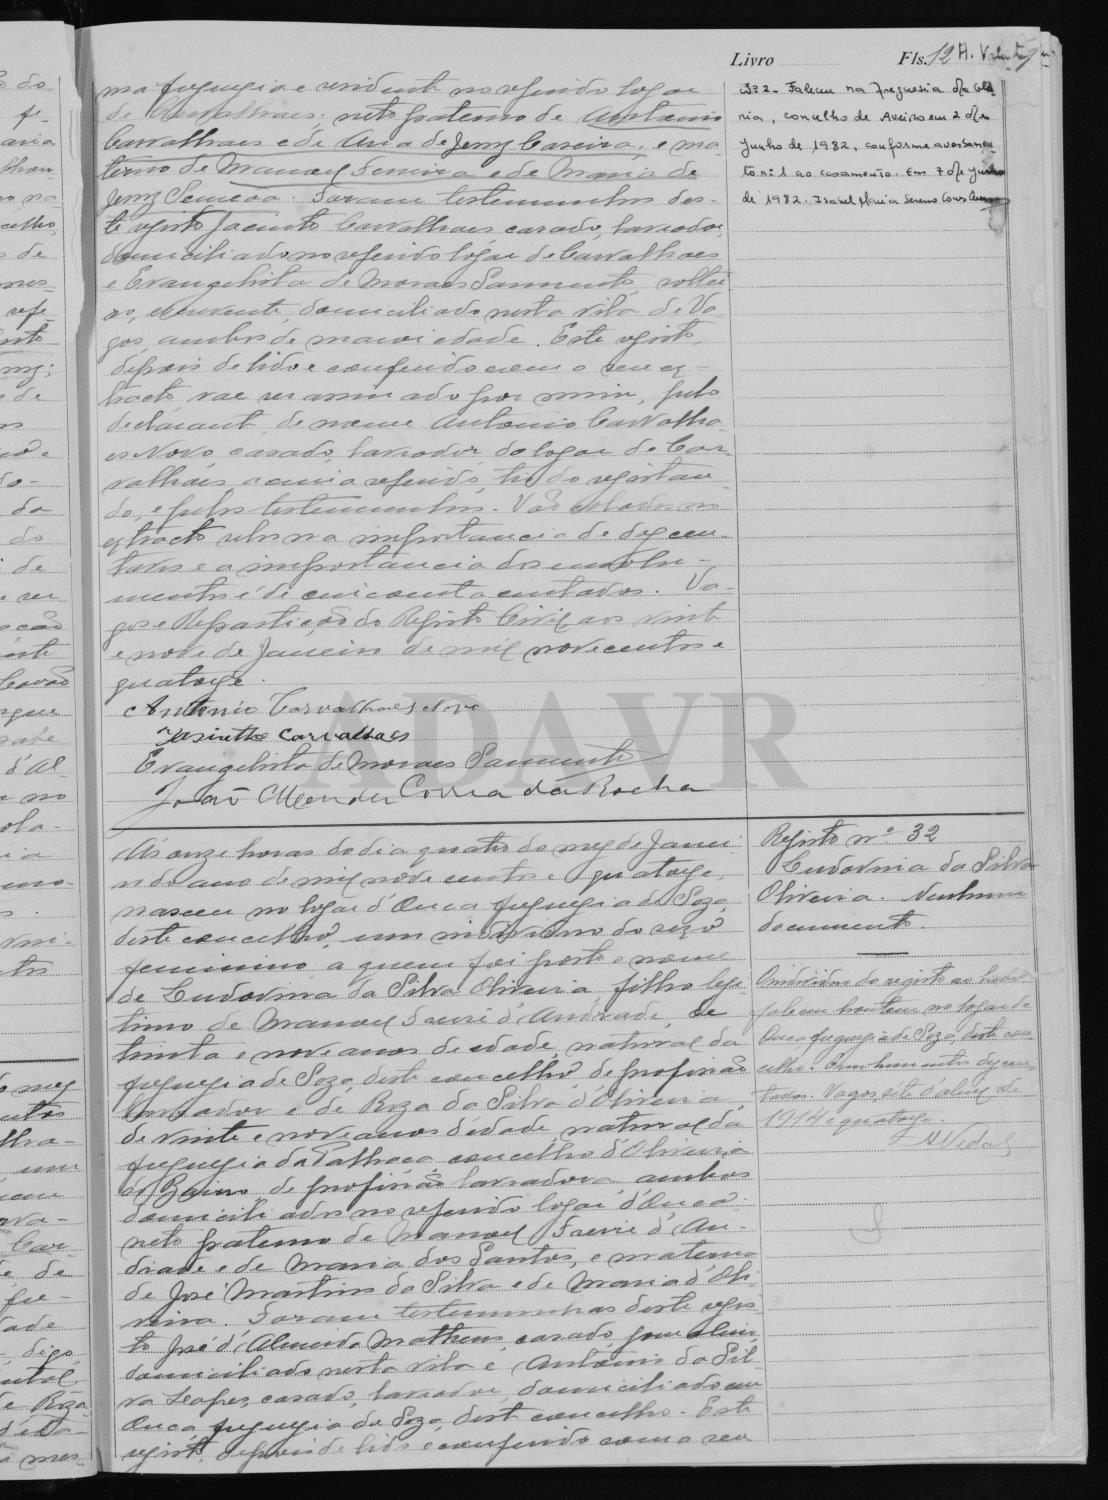 Livro Fls. 12
ma freguezia e residente no referido logar
de Carvalhaes: neto paterno de Antonio
Carvalhaes e de Anna de Jesuz Careira, e ma-
terno de Manoel Ferreira e de Maria de
Jesuz . Foram testemunhas des-
te registo Jacinto Carvalhaes, casado, lavrador,
domiciliado no referido logar de Carvalhaes
e Evangelista de Moraes Sarmento, soltei
ro, escrevente, domiciliado nesta vila de Va-
gos, ambos de maior idade. Este registo,
depois de lido e conferido com o seu ex-
tracto, vae ser assinado por mim, pelo
declarante, de nome Antonio Carvalha
es Novo, casado, lavrador, do logar de Car-
valhaes, acima referido, tio do registan-
do, e pelas testemunhas. Vão colados no
extracto selos na importancia de dez cen-
tavos e a importancia dos emolu-
mentos é de cincoenta centavos. Va-
gos e Repartição do Registo Civil aos vinte
e nove de Janeiro de mil novecentos e
quatorze.
Antonio Carvalhaes Novo
Jasintho Carvalhaes
Evangelista de Moraes Sarmento
João Mendes Correia da Rocha
Nº 2 - Faleceu na freguesia da Gló
ria, concelho de Aveiro em 2 de
Junho de 1982, conforme averbamen
to nº 1 ao casamento. Em 7 de Junho
de 1982. Isabel Maria
ADAVR
Ás onze horas do dia quatro do mez de Janei-
ro do ano de mil nove centos e quatorze,
nasceu no logar d'Ouca, freguezia de Soza,
deste concelho, um individuo do sexo
feminino, a quem foi posto o nome
de Ludovina da Silva Oliveira, filho legi-
timo de Manoel Freire d'Andrade, de
trinta e nove anos de edade, natural da
freguezia de Soza, deste concelho, de profissão
lavrador e de Roza da Silva d'Oliveira,
de vinte e nove anos d'edade, natural da
freguezia da Palhaça, concelho d'Oliveira
do Bairro, de profissão lavradora, ambos
domiciliados no referido logar d'Ouca:
neto paterno de Manoel Freire d'An-
drade e de Maria dos Santos, e materno
de José Martins da Silva e de Maria d'Oli
veira. Foram testemunhas deste regis
to José d'Almeida Matheus, casado,
domiciliado nesta vila e Antonio da Sil-
va Lopes, casado, lavrador, domiciliado em
Ouca, freguezia de Soza, deste concelho. Este
registo, depois de lido e conferido com o seu
Registo nº 32
Ludovina da Silva
Oliveira. Nenhum
documento.
O individuo do registo ao lado
faleceu hontem no logar de
Ouca, freguezia de Soza, deste con-
celho. Emolumentos dez cen-
tavos. Vagos, sete d'abril de
1914 e quatorze.